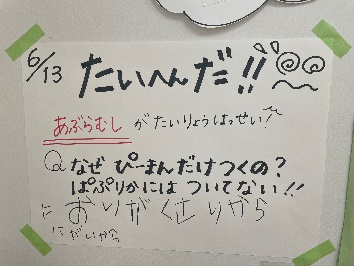 6/13
たいへんだ!!
あぶらむし がたいりょうはっせい!
Q なぜ ぴーまんだけつくの?
ぱぷりかには ついてない!!
おりがくさりから
にがいから